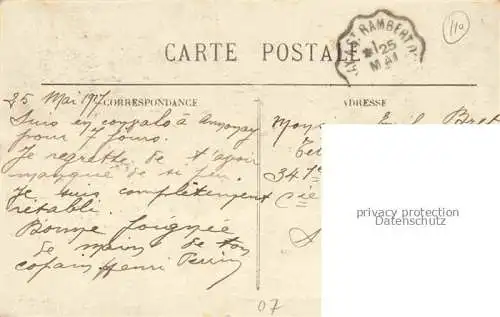 110
CARTE POSTALE
ST RAMBERT
25
MAI
25 Mai 1917
CORRESPONDANCE
ADRESSE
Suis en congalo à Annonay
pour 7 jours.
Je regrette de t'avoir
manqué de si peu.
Je suis complètement
rétabli.
Bonne Poignée
de main de ton
copain Henri Perrin
Emile
347e
Cie
privacy protection
Datenschutz
07